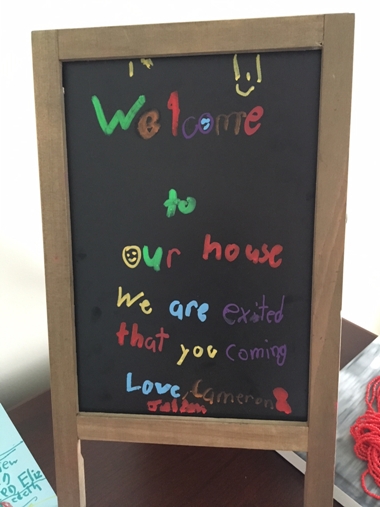 Welcome
to
our house
We are exited
that you coming
Love, Cameron